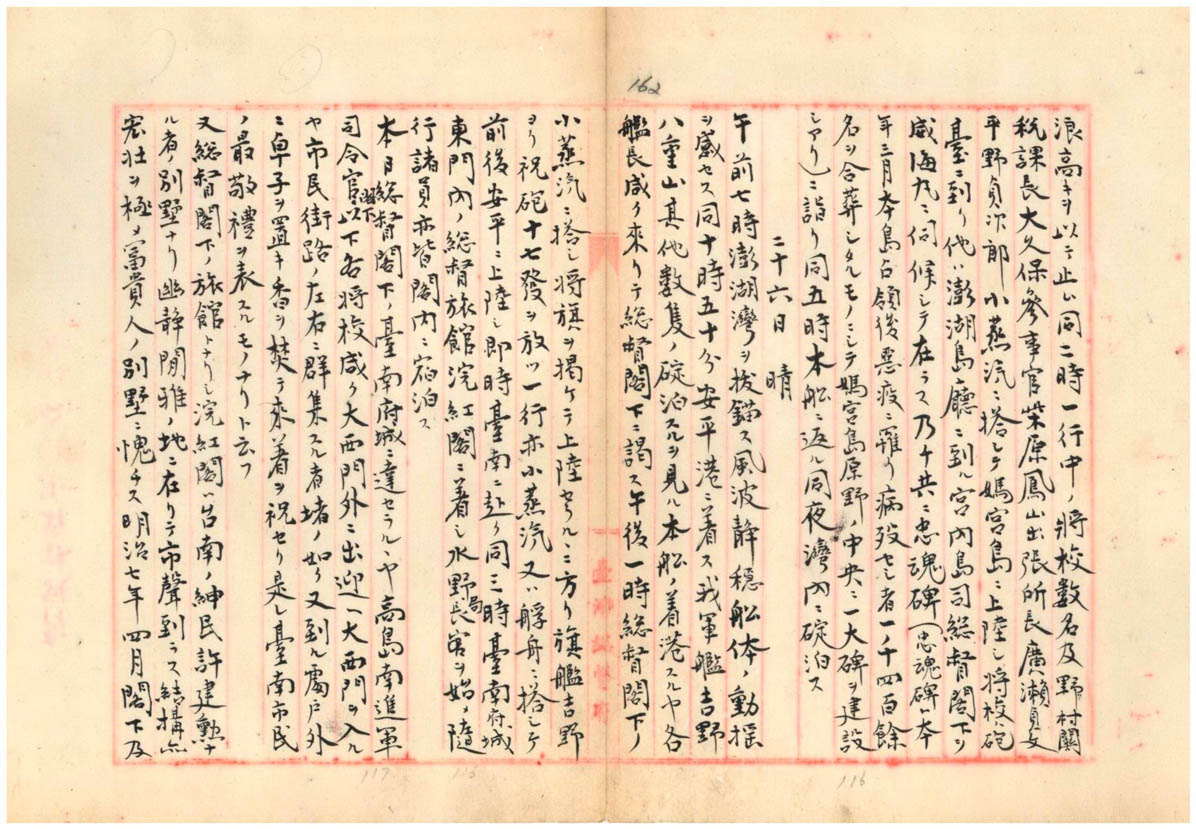 162
浪高キヲ以テ止ム同二時一行中ノ將校數名及野村關
税課長大久保參事官柴原鳳山出張所長廣瀨貞文
平野貞次郎小蒸汽ニ搭シテ媽宮島ニ上陸シ將校砲
臺ニ到リ他ハ澎湖島廳ニ到ル宮內島司総督閣下ヲ
威海丸ニ伺候シテ在ラス乃チ共ニ忠魂碑(忠魂碑本
年三月本島占領後惡疫ニ罹リ病歿セシ者一千四百餘
名ヲ合葬シタルモノニシテ媽宮島原野ノ中央ニ一大碑ヲ建設
シアリ)ニ詣リ同五時本船ニ返ル同夜灣內ニ碇泊ス
二十六日 晴
午前七時澎湖灣ヲ拔錨ス風波靜穩船体ノ動揺
ヲ感セス同十時五十分安平港ニ着ス我軍艦吉野
八重山其他數隻ノ碇泊スルヲ見ル本船ノ着港スルヤ各
艦長咸ク來リテ総督閣下ニ謁ス午後一時総督閣下ノ
小蒸汽ニ搭シ將旗ヲ揭ケテ上陸セラルヽニ方リ旗艦吉野
ヨリ祝砲十七發ヲ放ツ一行亦小蒸汽又ハ艀舟ニ搭シテ
前後安平ニ上陸シ即時臺南ニ赴リ同三時臺南府城
東門內ノ総督旅館浣紅閣ニ着シ水野局長官ヲ始メ隨
行諸員亦皆閣內ニ宿泊ス
本日総督閣下ノ臺南府城ニ達セラルヽヤ高島南進軍
司令官閣下以下各將校咸ク大西門外ニ出迎ヘ大西門ヲ入ル
ヤ市民街路ノ左右ニ群集スル者堵ノ如リ又到ル處戶外
ニ卓子ヲ置キ香ヲ焚テ來着ヲ祝セリ是レ臺南市民
ノ最敬禮ヲ表スルモノナリト云フ
又総督閣下ノ旅館トナリシ浣紅閣ハ台南ノ紳民許建勳ナ
ル者ノ別墅ナリ幽靜閒雅ノ地ニ在リテ市聲到ラス結構亦
宏壯ヲ極メ富貴人ノ別墅ニ愧チス明治七年四月閣下及
117
116
116